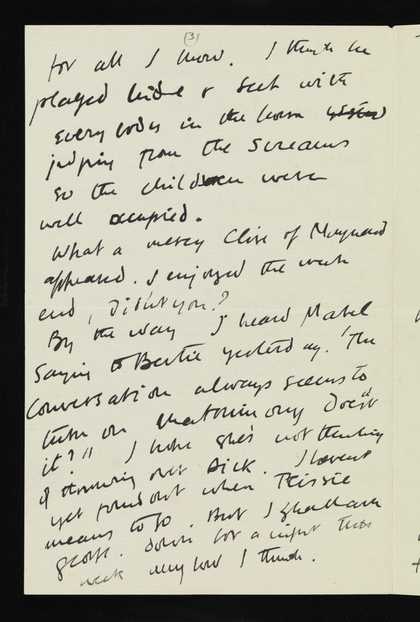 (3)
for all I know. I think he
played hide & seek with
everybody in the house
judging from the screams
so the children were
well occupied.
What a mercy Clive & Maynard
appeared. I enjoyed the week
end, Didn't you?
By the way I heard Mabel
saying to Bertie yesterday. 'The
Conversation always seems to
turn on Matrimony Doesn't
it?" I hope she's not thinking
of marrying our Dick. I havent
yet found out when Tissie
means to go. But I shall have
down for a night this
week anyhow I think.